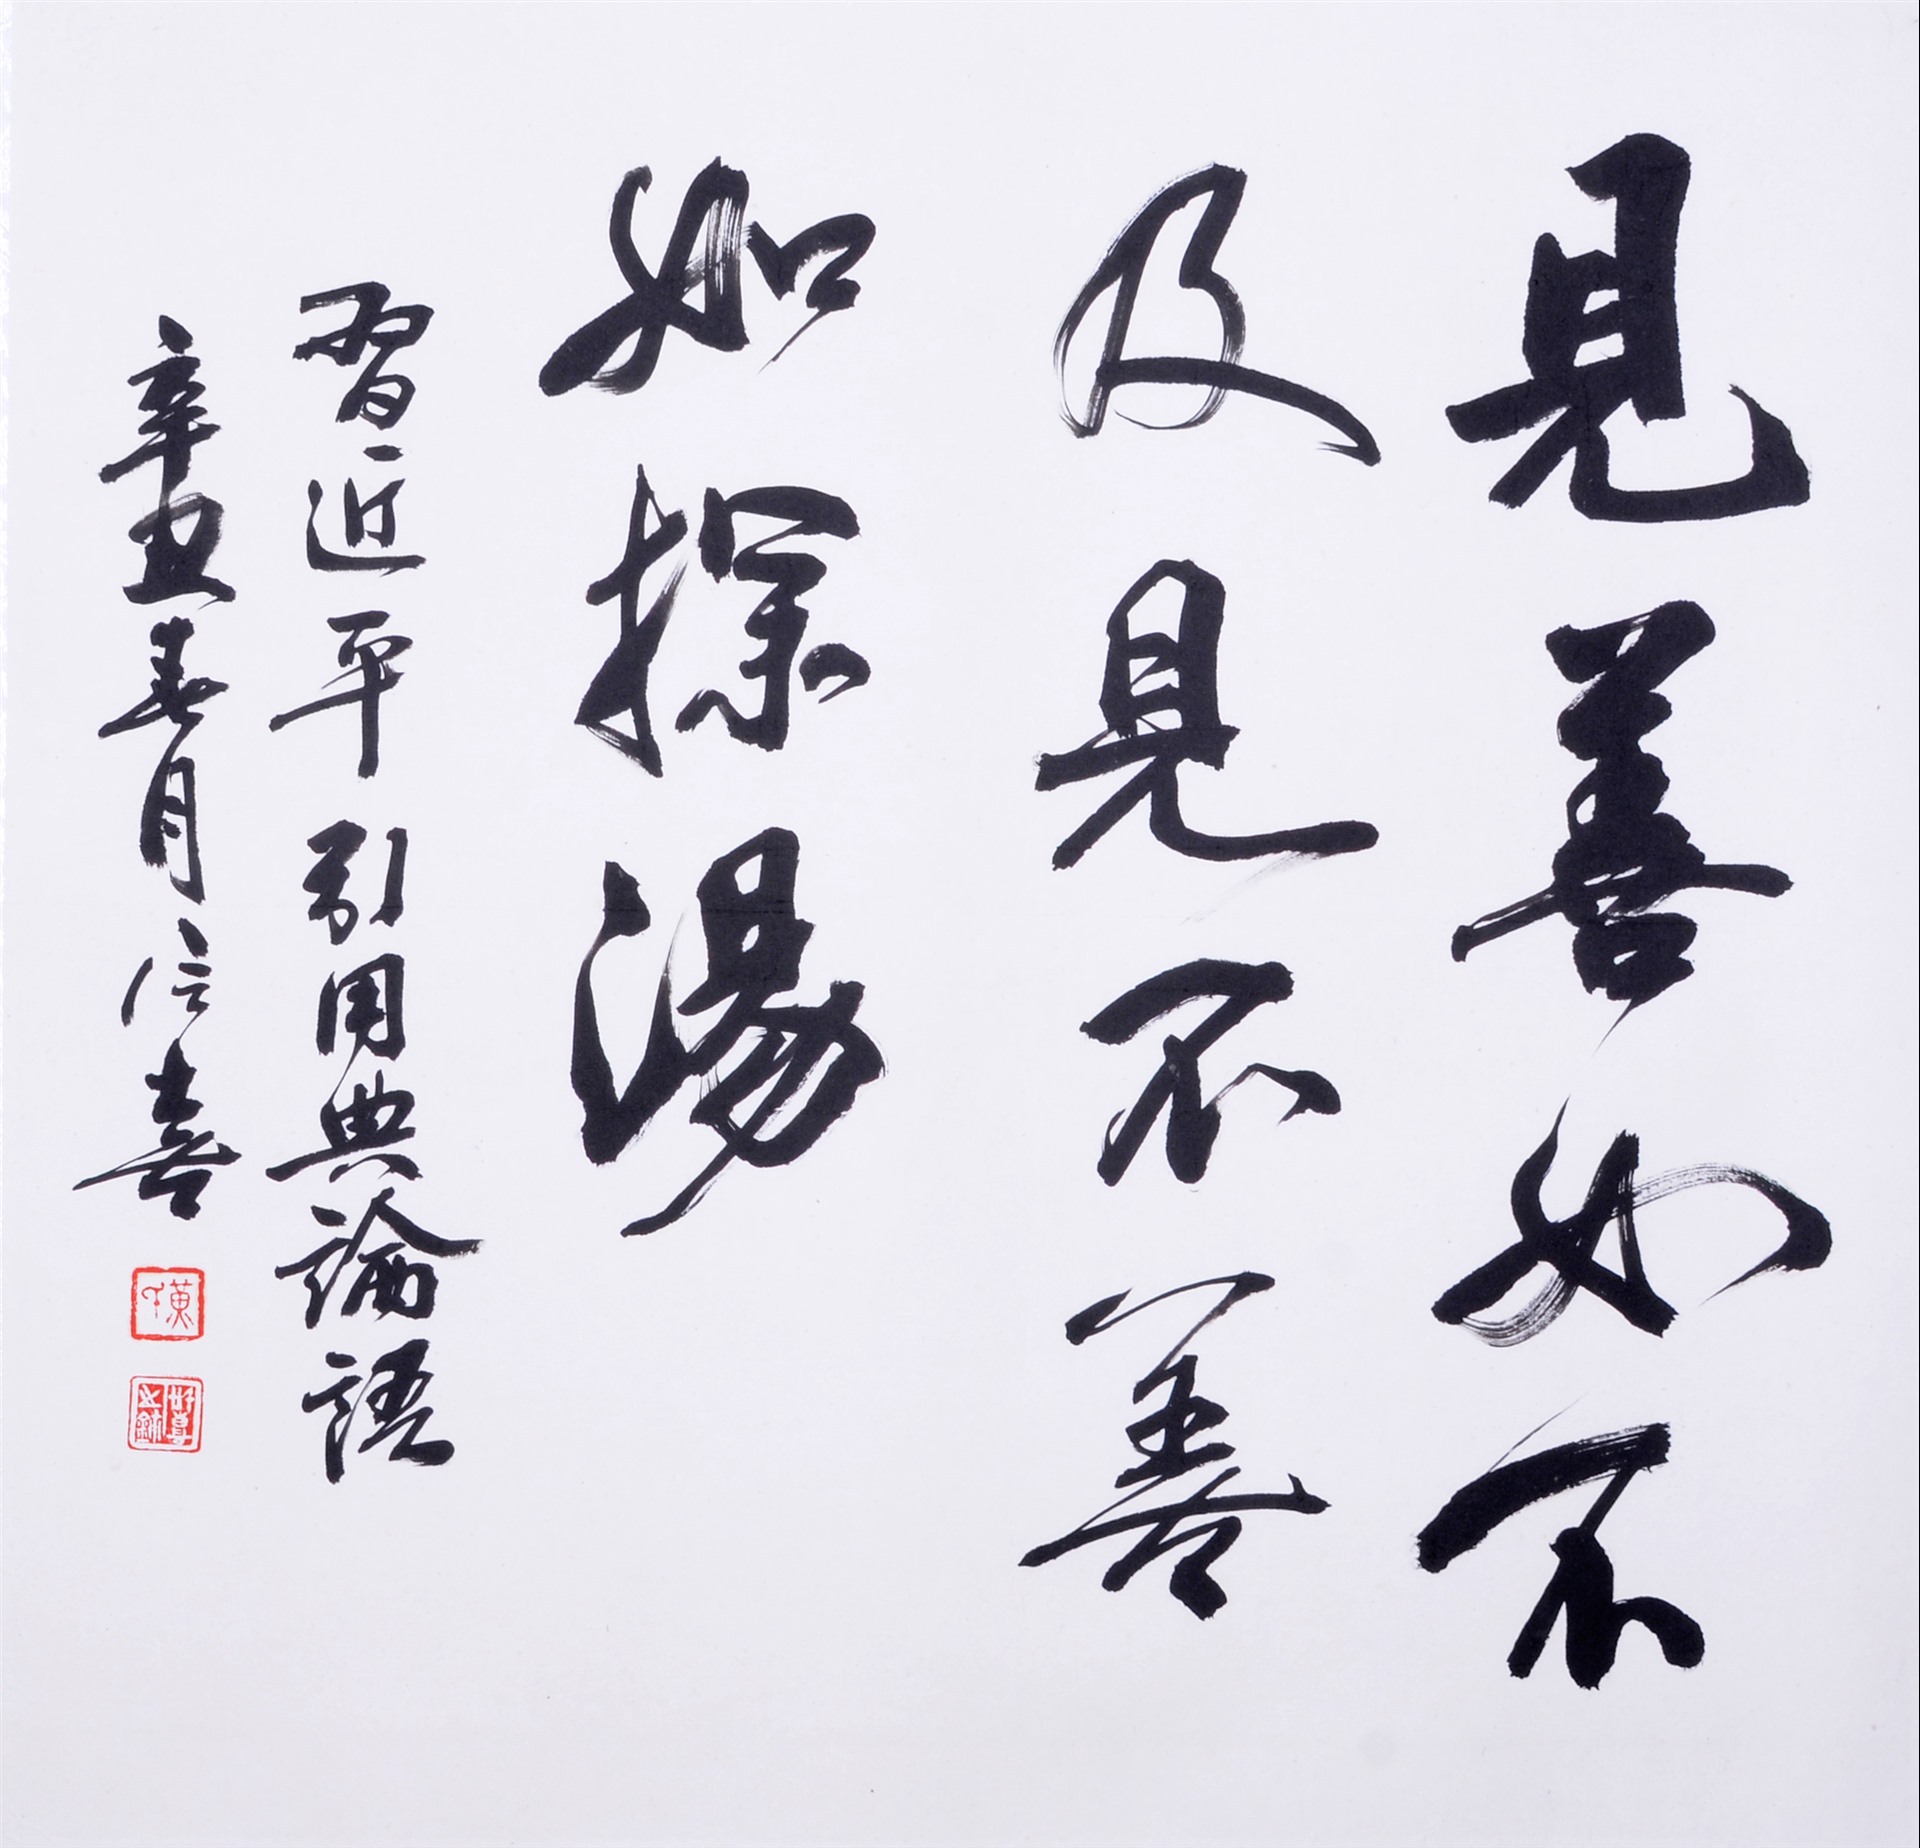 見善如不
及見不善
如探湯
習近平引用典論語
辛丑春月信喜